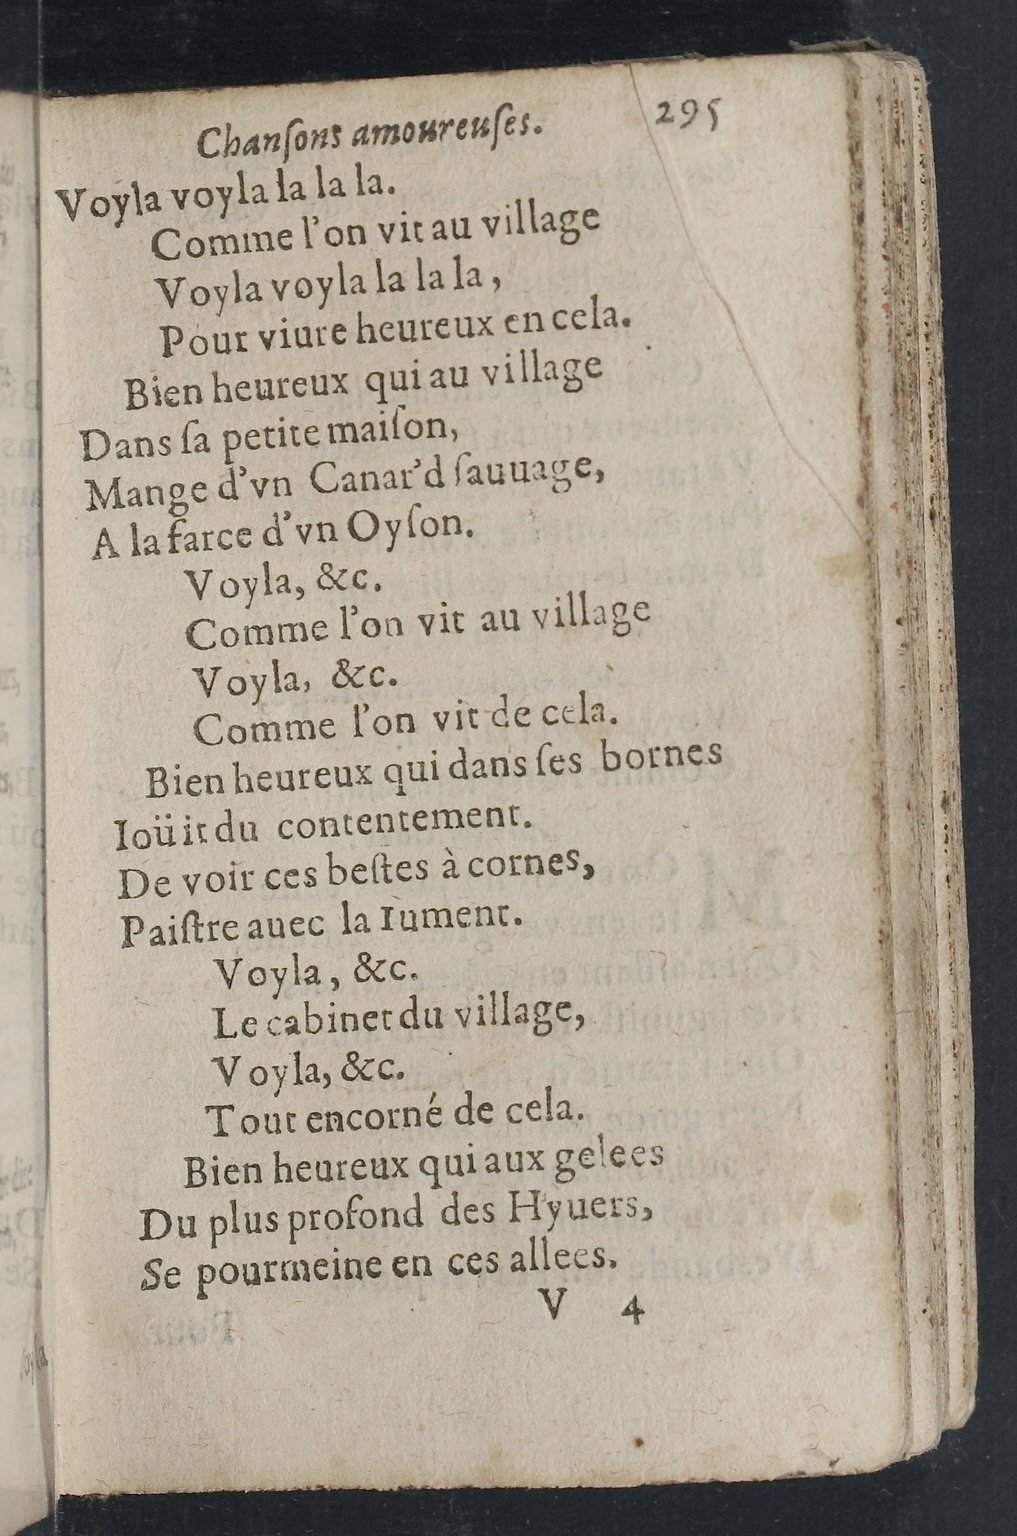 Chanſons amoureuſes. 295
Voyla voyla la la la.
Comme l'on vit au village
Voyla voyla la la la,
Pour viure heureux en cela.
Bien heureux qui au village
Dans ſa petite maiſon,
Mange d'vn Canar'd ſauuage,
A la farce d'vn Oyſon.
Voyla, &c.
Comme l'on vit au village
Voyla, &c.
Comme l'on vit de cela.
Bien heureux qui dans ſes bornes
Ioüit du contentement.
De voir ces beſtes à cornes,
Paiſtre auec la Iument.
Voyla, &c.
Le cabinet du village,
Voyla, &c.
Tout encorné de cela.
Bien heureux qui aux gelees
Du plus profond des Hyuers,
Se pourmeine en ces allees.
V 4